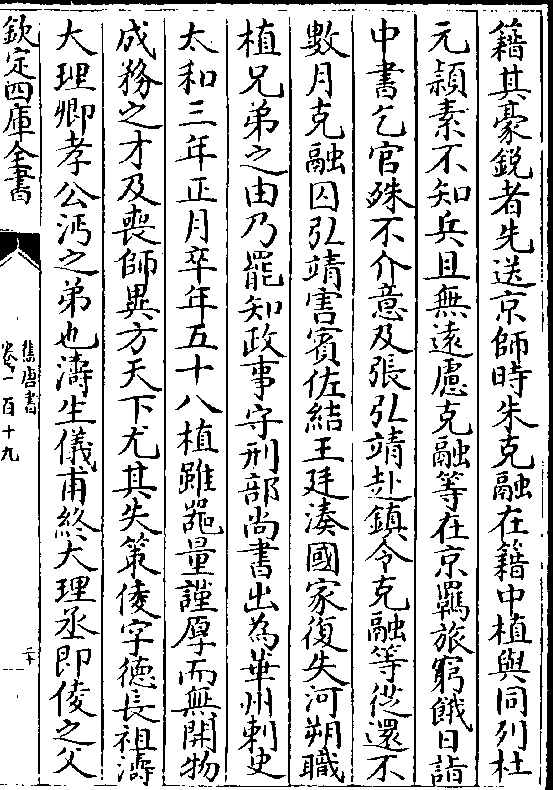 籍其豪鋭者先送京師時朱克融在籍中植與同列杜
元潁素不知兵且無遠慮克融等在京羈旅窮餓日詣
中書乞官殊不介意及張弘靖赴鎮令克融等從還不
數月克融囚弘靖害賓佐結王廷湊國家復失河朔職
植兄弟之由乃罷知政事守刑部尚書出為華州刺史
太和三年正月卒年五十八植雖器量謹厚而無開物
成務之才及喪師異方天下尤其失策倰字德長祖濤
大理卿孝公沔之弟也濤生儀甫終大理丞即倰之父
欽定四庫全書
舊唐書
卷一百十九
二十